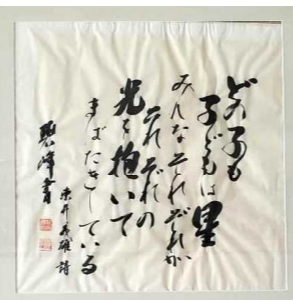 どの子も
子どもは星
みんなそれぞれが
それぞれの
光を抱いて
まばたきしている
東井義雄 詩
碧峰書